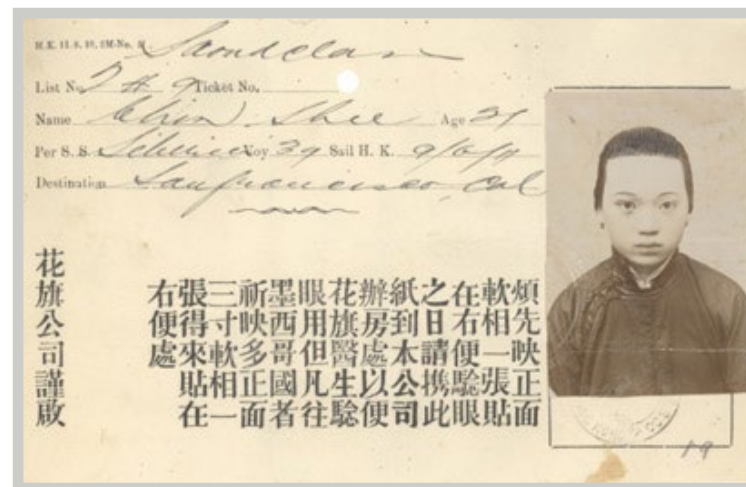 H.K. 11. 8. 10. 2M-No.
List No. Ticket No.
Name Chin Shee Age
Per S. S. Siberia Voy 39 Sail H. K.
Destination San francisco, Cal
煩先映正面
軟相一張貼
在右便騐眼
之日請携此
紙到本公司
辦房處以便
花旗醫生騐
眼用但凡往
墨西哥國者
祈映多正面
三寸軟相一
張得來貼在
右便處
花旗公司謹啟
19